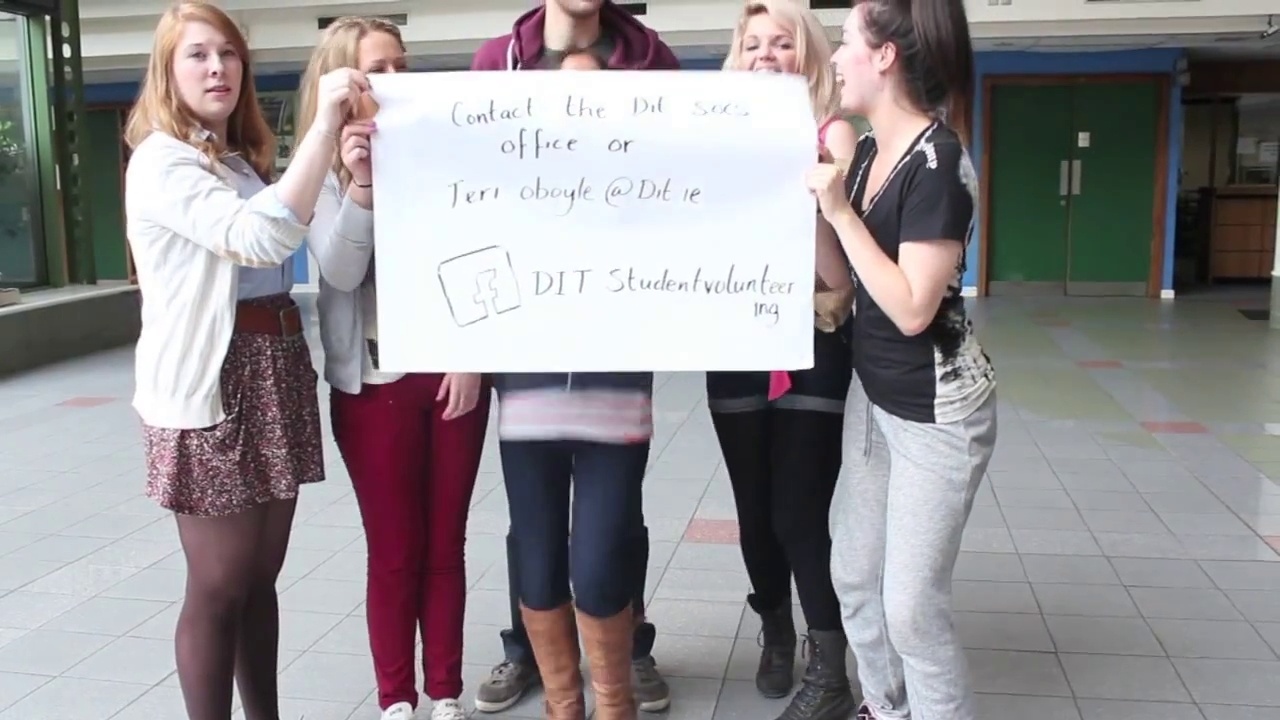 Contact the Dit socs
office or
Teri oboyle @ Dit ie
f DIT Studentvolunteer
ing